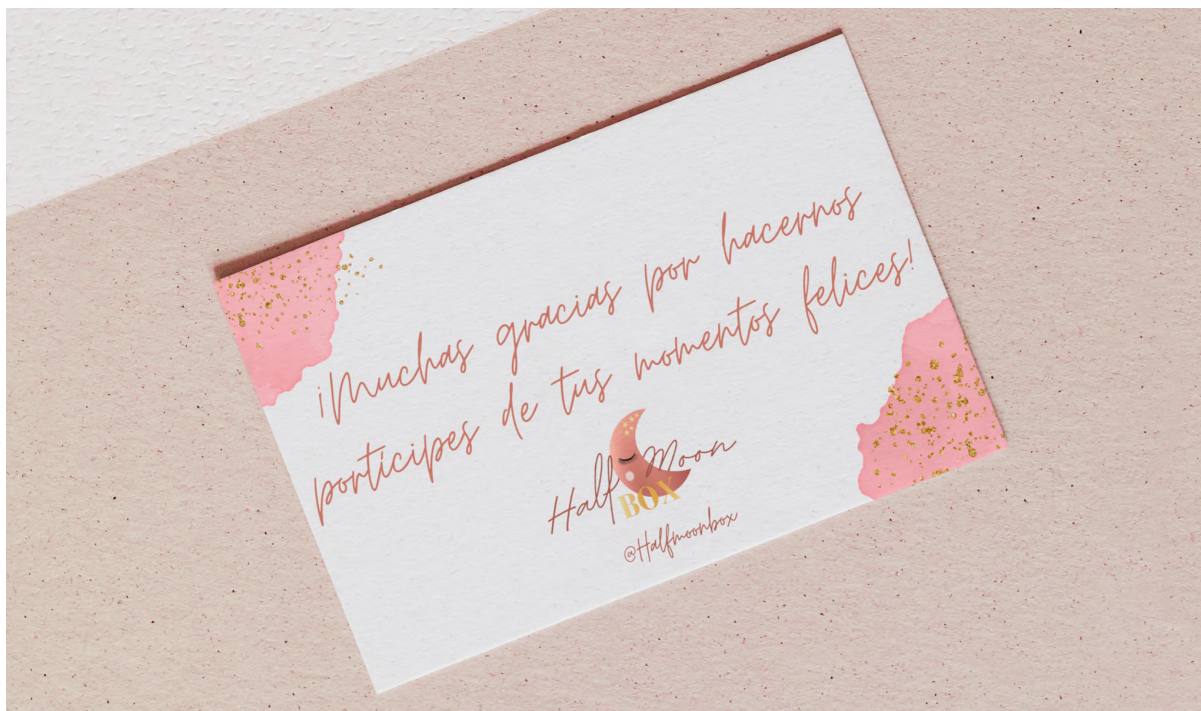 ¡Muchas gracias por hacernos
portícipes de tus momentos felices!
Half Moon
BOX
@Halfmoonbox